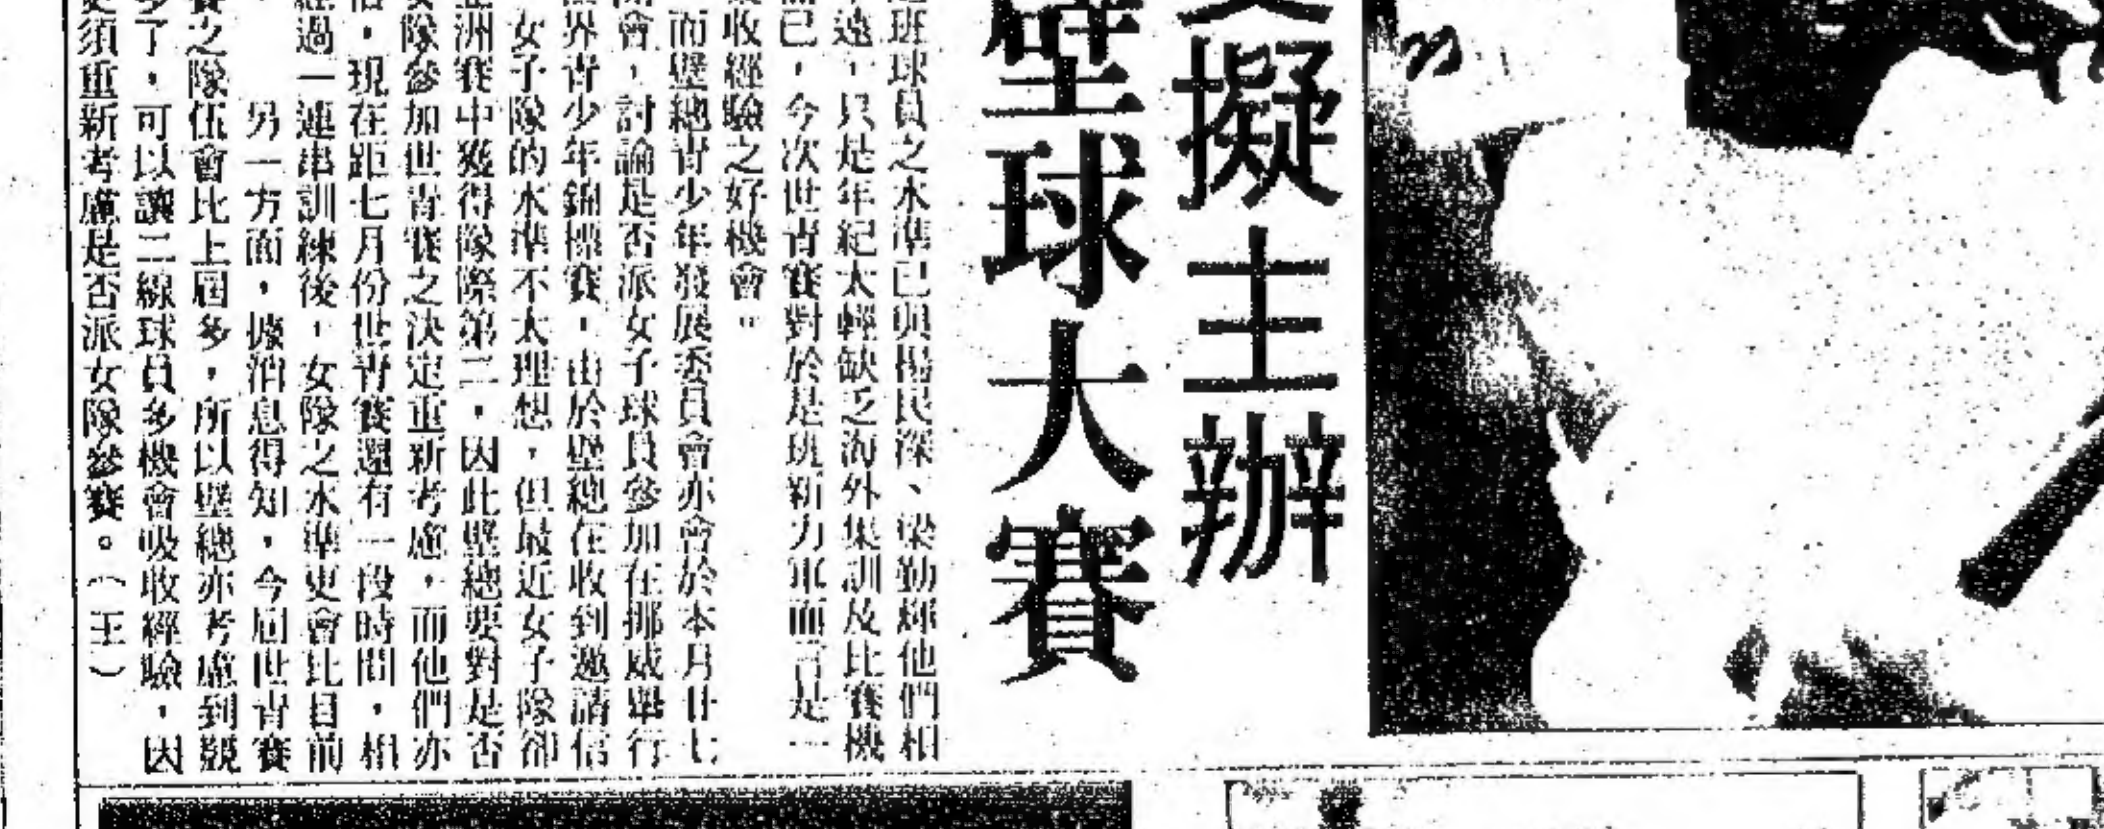 擬主辦
壁球大賽
班球員之水準已與楊民深、梁勤輝他們相
遠,只是年紀太輕缺乏海外集訓及比賽機
已,今次世青賽對於是班新力軍而言是一
收經驗之好機會。"
而壁總青少年發展委員會亦會於本月廿七
會,討論是否派女子球員參加在挪威舉行
界青少年錦標賽,由於壁總在收到邀請信
女子隊的水準不太理想,但最近女子隊卻
洲賽中獲得隊際第二,因此壁總要對是否
隊參加世青賽之決定重新考慮,而他們亦
,現在距七月份世青賽還有一段時間,相
過一連串訓練後,女隊之水準更會比目前
另一方面,據消息得知,今屆世青賽
之隊伍會比上屆多,所以壁總亦考慮到競
了,可以讓二線球員多機會吸收經驗,因
須重新考慮是否派女隊參賽。(王)